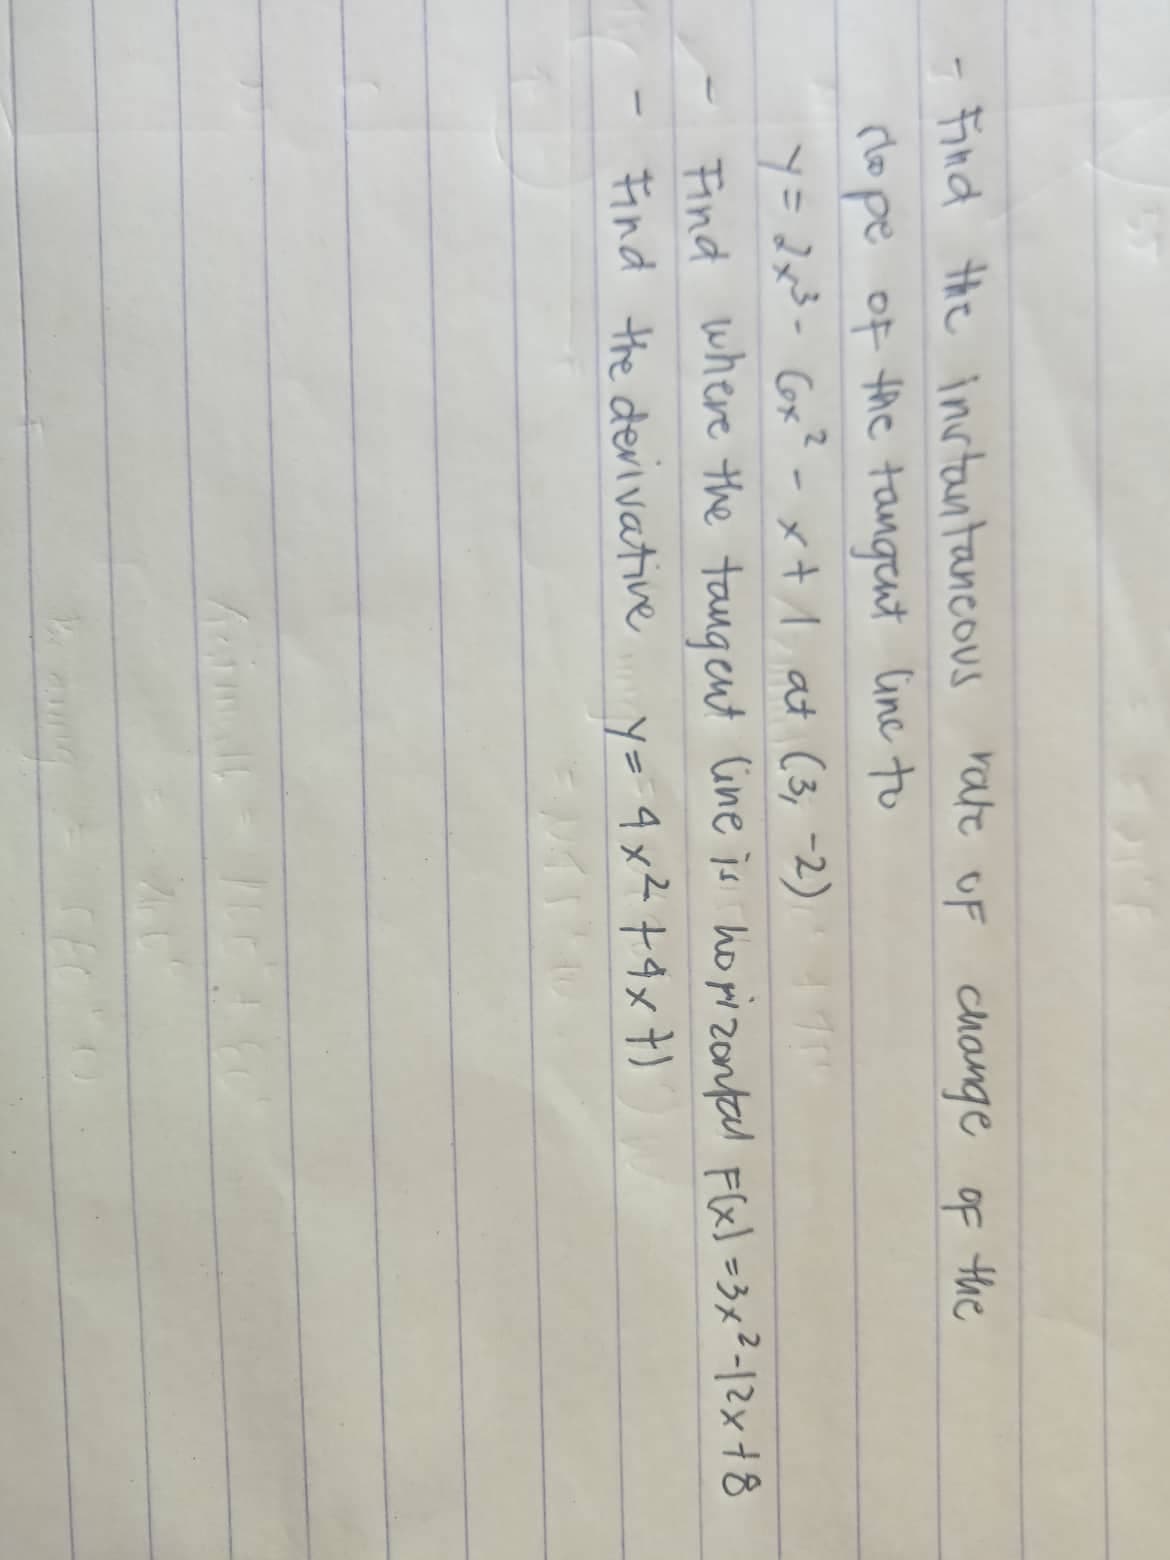 - Find the instantaneous rate of change of the
slope of the tangent line to
y = 2x³ - 6x² - x + 1 at (3, -2)
- Find where the tangent line is horizontal F(x) = 3x² - 12x + 8
- Find the derivative y = 4x² + 4x + 1